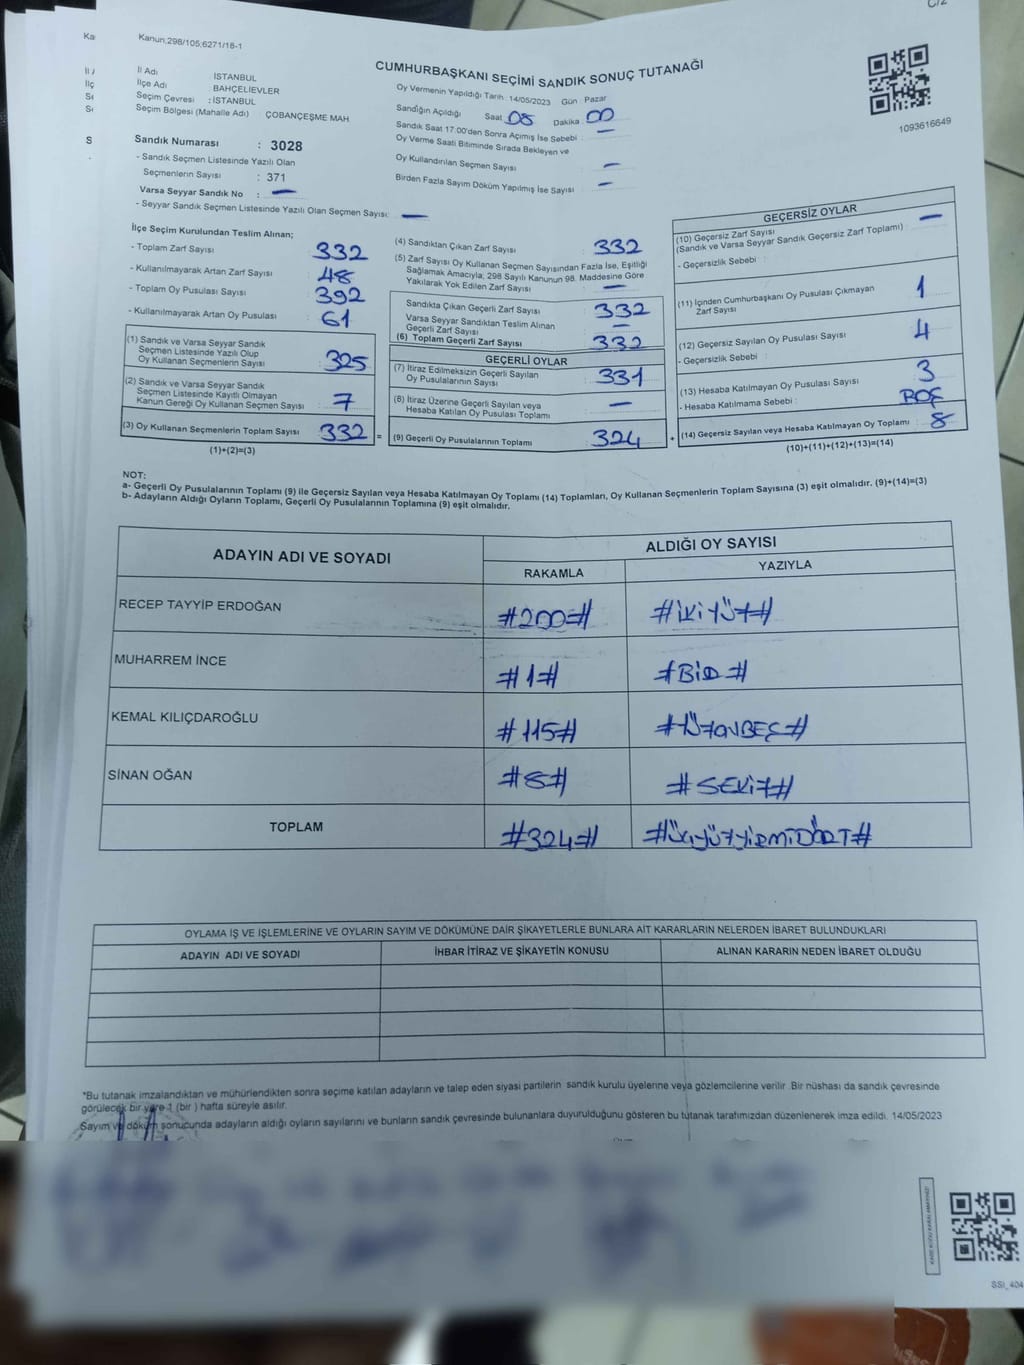 C/2
Ka
Kanun;298/105;6271/18-1
CUMHURBAŞKANI SEÇİMİ SANDIK SONUÇ TUTANAĞI
İl Adı İSTANBUL
İlçe Adı BAHÇELİEVLER
Seçim Çevresi : İSTANBUL
Seçim Bölgesi (Mahalle Adı) ÇOBANÇEŞME MAH.
Sandık Numarası : 3028
- Sandık Seçmen Listesinde Yazılı Olan
Seçmenlerin Sayısı : 371
Varsa Seyyar Sandık No : —
- Seyyar Sandık Seçmen Listesinde Yazılı Olan Seçmen Sayısı: —
Oy Vermenin Yapıldığı Tarih 14/05/2023 Gün Pazar
Sandığın Açıldığı Saat 08 Dakika 00
Sandık Saat 17.00'den Sonra Açımış İse Sebebi : —
Oy Verme Saati Bitiminde Sırada Bekleyen ve
Oy Kullandırılan Seçmen Sayısı : —
Birden Fazla Sayım Döküm Yapılmış İse Sayısı : —
1093616649
İlçe Seçim Kurulundan Teslim Alınan;
- Toplam Zarf Sayısı : 332
- Kullanılmayarak Artan Zarf Sayısı : 48
- Toplam Oy Pusulası Sayısı : 392
- Kullanılmayarak Artan Oy Pusulası : 61
(1) Sandık ve Varsa Seyyar Sandık
Seçmen Listesinde Yazılı Olup
Oy Kullanan Seçmenlerin Sayısı : 325
(2) Sandık ve Varsa Seyyar Sandık
Seçmen Listesinde Kayıtlı Olmayan
Kanun Gereği Oy Kullanan Seçmen Sayısı : 7
(3) Oy Kullanan Seçmenlerin Toplam Sayısı : 332 =
(1)+(2)=(3)
(4) Sandıktan Çıkan Zarf Sayısı : 332
(5) Zarf Sayısı Oy Kullanan Seçmen Sayısından Fazla İse, Eşitliği
Sağlamak Amacıyla, 298 Sayılı Kanunun 98. Maddesine Göre
Yakılarak Yok Edilen Zarf Sayısı : —
Sandıkta Çıkan Geçerli Zarf Sayısı : 332
Varsa Seyyar Sandıktan Teslim Alınan
Geçerli Zarf Sayısı : —
(6) Toplam Geçerli Zarf Sayısı : 332
GEÇERLİ OYLAR
(7) İtiraz Edilmeksizin Geçerli Sayılan
Oy Pusulalarının Sayısı : 331
(8) İtiraz Üzerine Geçerli Sayılan veya
Hesaba Katılan Oy Pusulası Toplamı : —
(9) Geçerli Oy Pusulalarının Toplamı : 324 +
GEÇERSİZ OYLAR
(10) Geçersiz Zarf Sayısı
(Sandık ve Varsa Seyyar Sandık Geçersiz Zarf Toplamı) : —
- Geçersizlik Sebebi :
(11) İçinden Cumhurbaşkanı Oy Pusulası Çıkmayan
Zarf Sayısı : 1
(12) Geçersiz Sayılan Oy Pusulası Sayısı : 4
- Geçersizlik Sebebi :
(13) Hesaba Katılmayan Oy Pusulası Sayısı : 3
- Hesaba Katılmama Sebebi : BOŞ
(14) Geçersiz Sayılan veya Hesaba Katılmayan Oy Toplamı : 8
(10)+(11)+(12)+(13)=(14)
NOT:
a- Geçerli Oy Pusulalarının Toplamı (9) ile Geçersiz Sayılan veya Hesaba Katılmayan Oy Toplamı (14) Toplamları, Oy Kullanan Seçmenlerin Toplam Sayısına (3) eşit olmalıdır. (9)+(14)=(3)
b- Adayların Aldığı Oyların Toplamı, Geçerli Oy Pusulalarının Toplamına (9) eşit olmalıdır.
ADAYIN ADI VE SOYADI ALDIĞI OY SAYISI
RAKAMLA YAZIYLA
RECEP TAYYİP ERDOĞAN #200# #İKİYÜZ#
MUHARREM İNCE #1# #BİR#
KEMAL KILIÇDAROĞLU #115# #YÜZONBEŞ#
SİNAN OĞAN #8# #SEKİZ#
TOPLAM #324# #ÜÇYÜZYİRMİDÖRT#
OYLAMA İŞ VE İŞLEMLERİNE VE OYLARIN SAYIM VE DÖKÜMÜNE DAİR ŞİKAYETLERLE BUNLARA AİT KARARLARIN NELERDEN İBARET BULUNDUKLARI
ADAYIN ADI VE SOYADI İHBAR İTİRAZ VE ŞİKAYETİN KONUSU ALINAN KARARIN NEDEN İBARET OLDUĞU
*Bu tutanak imzalandıktan ve mühürlendikten sonra seçime katılan adayların ve talep eden siyasi partilerin sandık kurulu üyelerine veya gözlemcilerine verilir. Bir nüshası da sandık çevresinde
görülecek bir yere 1 (bir ) hafta süreyle asılır.
Sayım ve döküm sonucunda adayların aldığı oyların sayılarını ve bunların sandık çevresinde bulunanlara duyurulduğunu gösteren bu tutanak tarafımızdan düzenlenerek imza edildi. 14/05/2023
SSI_404